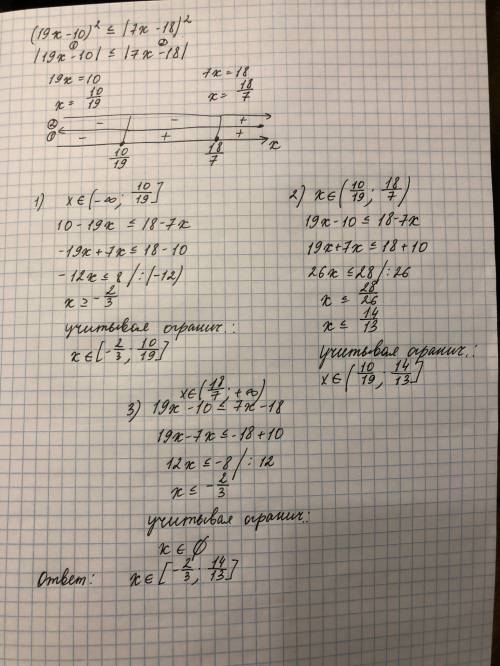 (19x-10)² ≤ (7x-18)²
① ②
|19x-10| ≤ |7x-18|
19x=10 7x=18
x= 10/19 x= 18/7
② - - +
① - + +
10/19 18/7 x
1) x∈(-∞; 10/19]
10-19x ≤ 18-7x
-19x+7x ≤ 18-10
-12x ≤ 8 /:(-12)
x ≥ -2/3
учитывая огранич.:
x∈[-2/3; 10/19]
2) x∈(10/19; 18/7)
19x-10 ≤ 18-7x
19x+7x ≤ 18+10
26x ≤ 28 /:26
x ≤ 28/26
x ≤ 14/13
учитывая огранич.:
x∈(10/19; 14/13]
x∈(18/7; +∞)
3) 19x-10 ≤ 7x-18
19x-7x ≤ -18+10
12x ≤ -8 /:12
x ≤ -2/3
учитывая огранич.:
x ∈ ∅
Ответ: x∈[-2/3; 14/13]